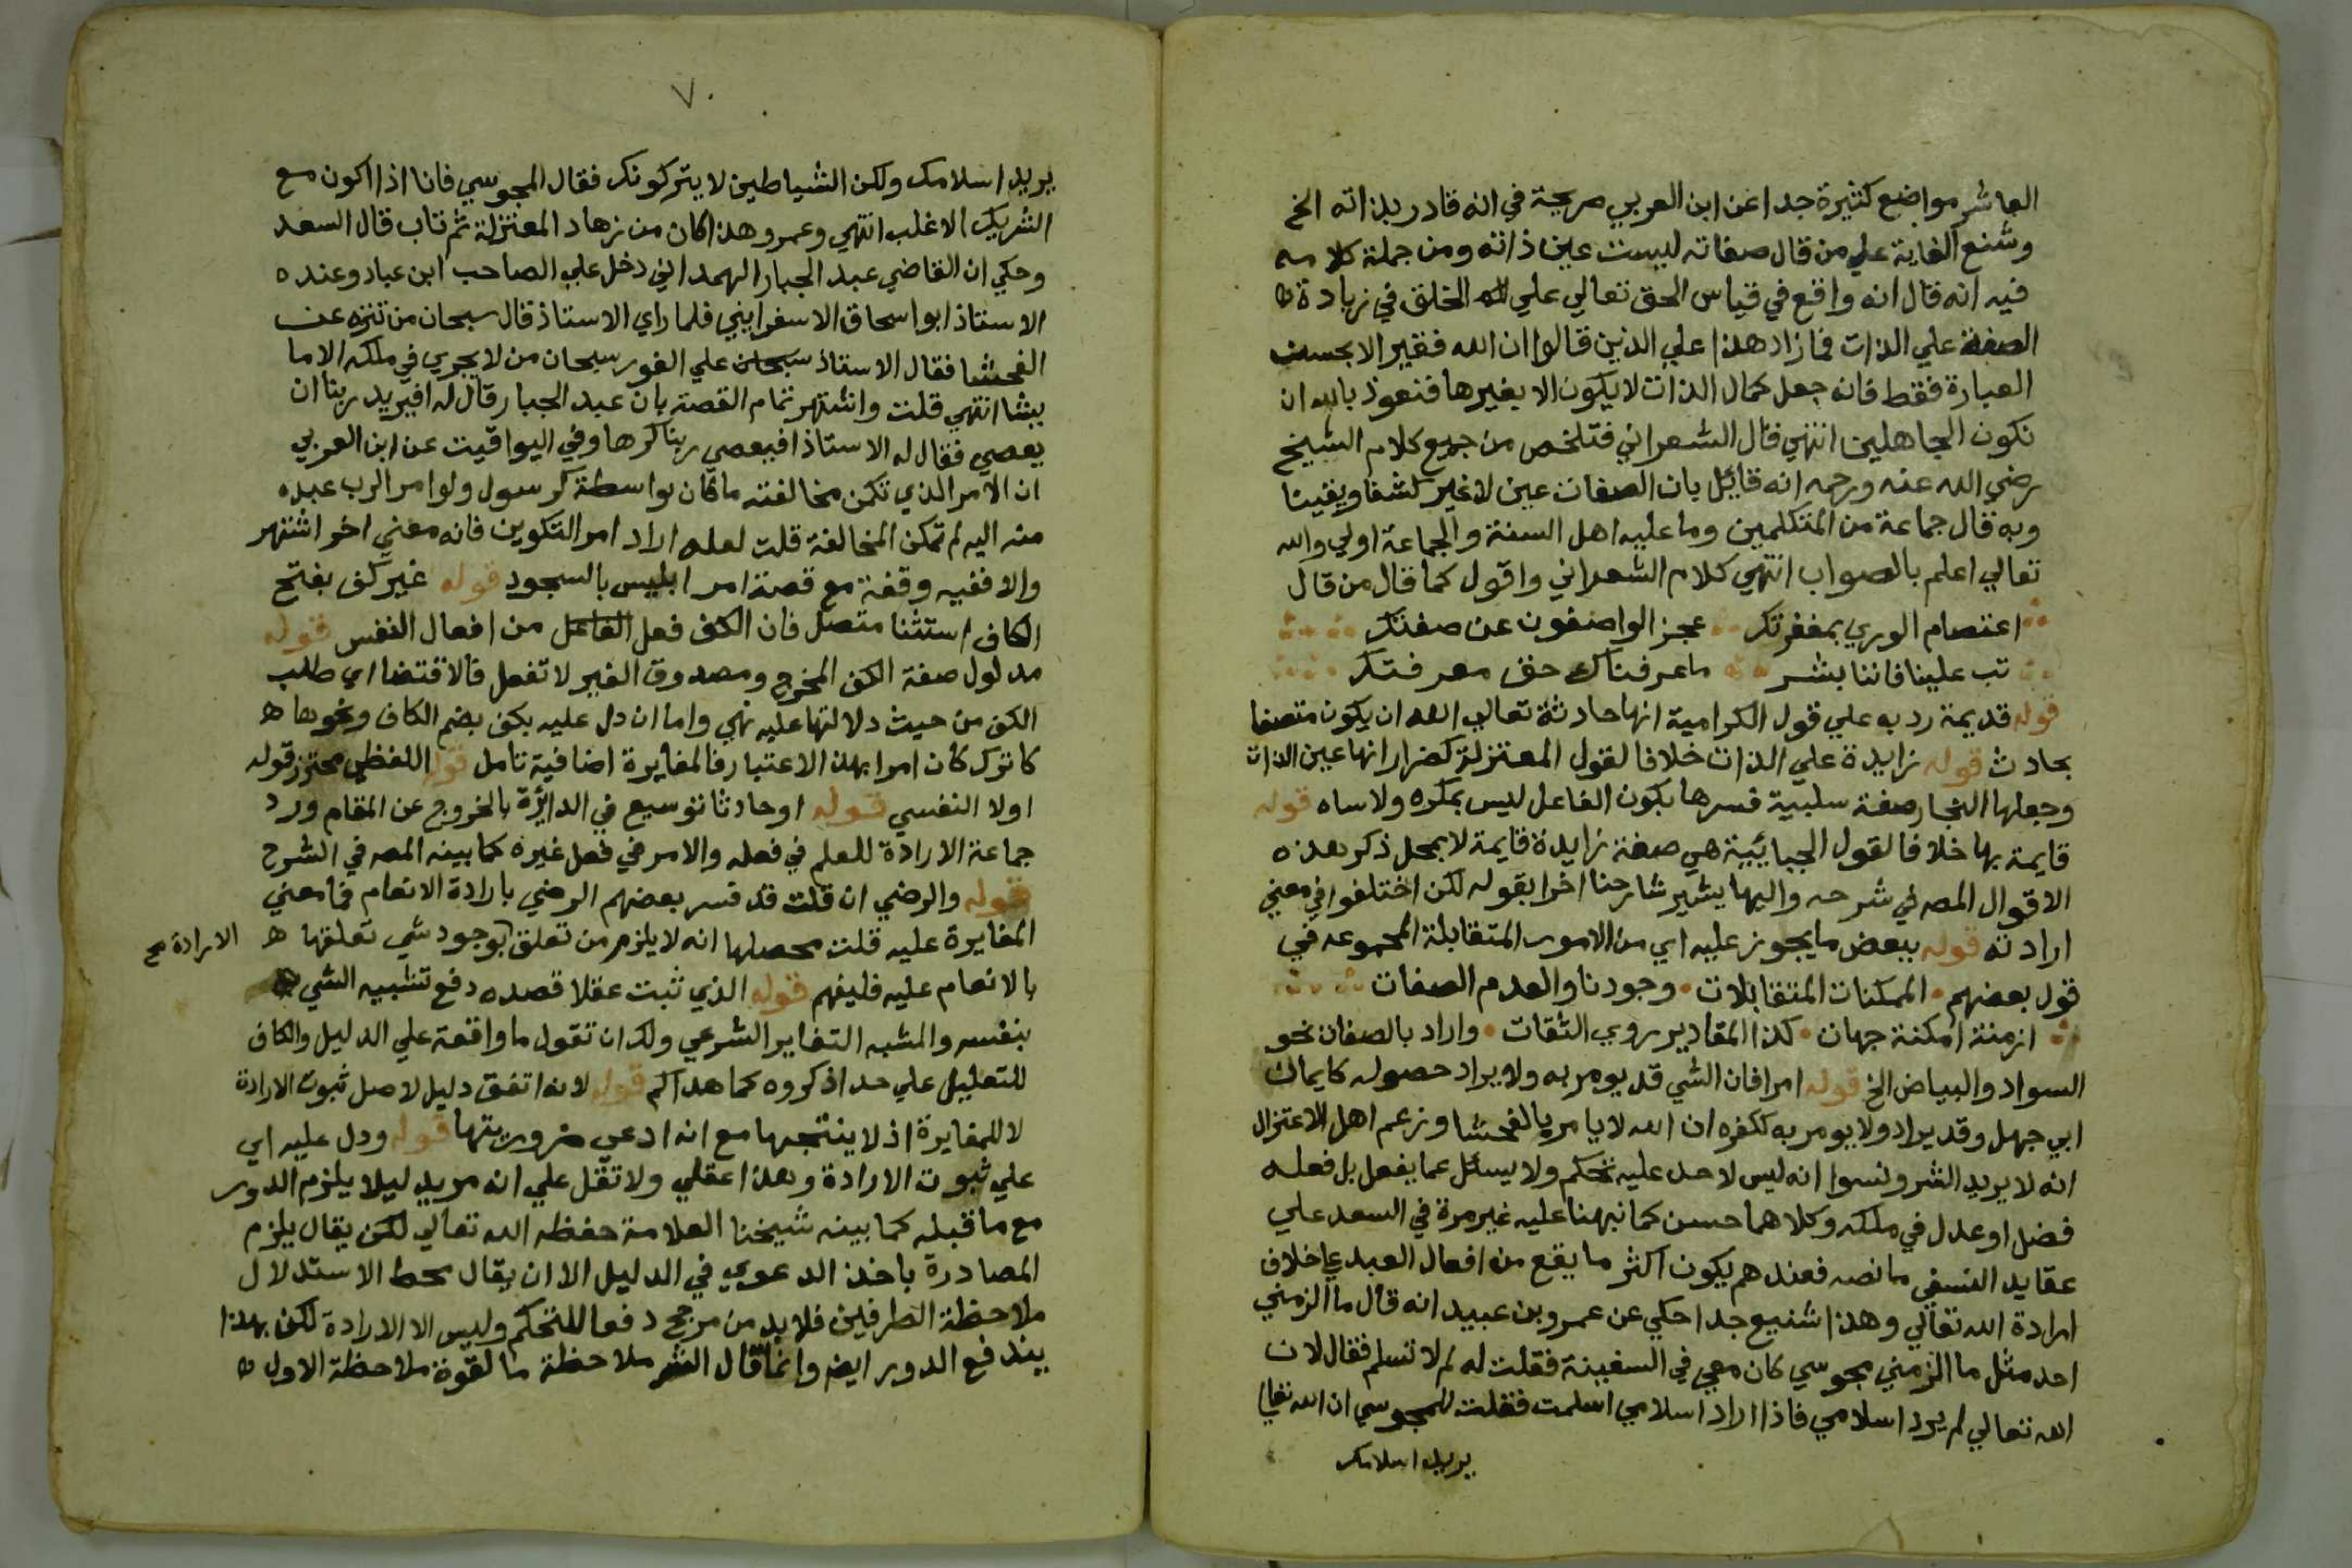 العاشر مواضع كثيرة جدا عن ابن العربي صريحة في انه قادر بذاته الخ
وشنع الغاية علي من قال صفاته ليست عين ذاته ومن جملة كلامه
فيه انه قال انه واقع في قياس الحق تعالي علي الخلق في زيادة
الصفة علي الذات فما زاد هذا علي الذين قالوا ان الله فقير الا بحسن
العبارة فقط فانه جعل كمال الذات لا يكون الا بغيرها فنعوذ بالله ان
نكون الجاهلين انتهي قال الشعراني فتلخص من جميع كلام الشيخ
رضي الله عنه ورحمه انه قائل بان الصفات عين لا غير كشفا ويقينا
وبه قال جماعة من المتكلمين وما عليه اهل السنة والجماعة اولي والله
تعالي اعلم بالصواب انتهي كلام الشعراني واقول كما قال من قال
اعتصام الوري بمغفرتك عجز الواصفون عن صفتك
تب علينا فاننا بشر ما عرفناك حق معرفتك
قوله قديمة رد به علي قول الكرامية انها حادثة تعالي الله ان يكون متصفا
بحادث قوله زايدة علي الذات خلافا لقول المعتزلة كضرار انها عين الذات
وجعلها النجار صفة سلبية فسرها بكون الفاعل ليس بمكره ولا ساه قوله
قايمة بها خلافا لقول الجبائيية هي صفة زايدة قايمة لا بمحل ذكر هذه
الاقوال المصه في شرحه واليها يشير شارحنا اخرا بقوله لكن اختلفوا في معني
ارادته قوله ببعض ما يجوز عليه اي من الامور المتقابلة المجموعه في
قول بعضهم الممكنات المتقابلات وجودنا والعدم الصفات
ازمنة امكنة جهات كذا المقادير روي الثقات واراد بالصفات نحو
السواد والبياض الخ قوله امرا فان الشي قد يومر به ولا يراد حصوله كايمان
ابي جهل وقد يراد ولا يومر به ككفره ان الله لا يامر بالفحشا وزعم اهل الاعتزال
انه لا يريد الشر ونسوا انه ليس لاحد عليه تحكم ولا يسئل عما يفعل بل فعله
فضل او عدل في ملكه وكلاهما حسن كما نبهنا عليه غير مرة في السعد علي
عقايد النسفي ما نصه فعندهم يكون اكثر ما يقع من افعال العبد علي خلاف
ارادة الله تعالي وهذا شنيع جدا حكي عن عمرو بن عبيد انه قال ما الزمني
احد مثل ما الزمني مجوسي كان معي في السفينة فقلت له لم لا تسلم فقال لان
الله تعالي لم يرد اسلامي فاذا اراد اسلامي اسلمت فقلت للمجوسي ان الله تعالي
يريد اسلامك
٧
يريد اسلامك ولكن الشياطين لا يتركونك فقال المجوسي فانا اذا اكون مع
الشريك الاغلب انتهي وعمرو هذا كان من زهاد المعتزلة ثم تاب قال السعد
وحكي ان القاضي عبد الجبار الهمداني دخل علي الصاحب ابن عباد وعنده
الاستاذ ابو اسحاق الاسفرايني فلما راي الاستاذ قال سبحان من تنزه عن
الفحشا فقال الاستاذ سبحان علي الفور سبحان من لا يجري في ملكه الا ما
يشا انتهي قلت واشتهر تمام القصة بان عبد الجبار قال له افيريد ربنا ان
يعصي فقال له الاستاذ افيعصي ربنا كرها وفي اليواقيت عن ابن العربي
ان الامر الذي تمكن مخالفته ما كان بواسطة كرسول ولو امر الرب عبده
منه اليه لم تمكن المخالفة قلت لعله اراد امر التكوين فانه معني اخر اشتهر
والا ففيه وقفة مع قصة امر ابليس بالسجود قوله غير كف بفتح
الكاف استثنا متصل فان الكف فعل الفاعل من افعال النفس قوله
مدلول صفة الكف المخرج ومصدوق الغير لا تفعل فالاقتضا اي طلب
الكف من حيث دلالتها عليه نهي واما ان دل عليه بكف بضم الكاف ونحوها
كاترك كان امرا بهذا الاعتبار فالمغايرة اضافية تامل قوله اللفظي محترز قوله
اولا النفسي قوله اوحادثا توسيع في الدائرة بالخروج عن المقام ورد
جماعة الارادة للعلم في فعله والامر في فعل غيره كما بينه المصه في الشرح
قوله والرضي ان قلت قد فسر بعضهم الرضي بارادة الانعام فما معني
المغايرة عليه قلت محصلها انه لا يلزم من تعلق بوجود شي تعلقها
الارادة صح
بالانعام عليه فليفهم قوله الذي ثبت عقلا قصده دفع تشبيه الشي
بنفسه والمشبه التغاير الشرعي ولك ان تقول ما واقعة علي الدليل والكاف
للتعليل علي حد اذكروه كما هداكم قوله لانه اتفق دليل لاصل ثبوت الارادة
لا للمغايرة اذ لا ينتجها مع انه ادعي ضروريتها قوله ودل عليه اي
علي ثبوت الارادة وهذا عقلي ولا تقل علي انه مريد ليلا يلزم الدور
مع ما قبله كما بينه شيخنا العلامة حفظه الله تعالي لكن يقال يلزم
المصادرة باخذ الدعوي في الدليل الا ان يقال محط الاستدلال
ملاحظة الطرفين فلا بد من مرجح دفعا للتحكم وليس الا الارادة لكن بهذا
يندفع الدور ايضه وانما قال ملاحظة ما لقوة ملاحظة الاول